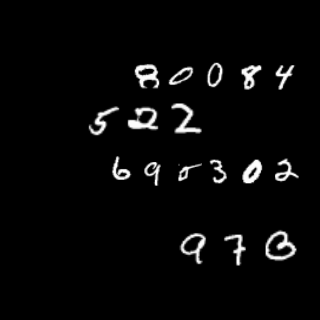 80084
522
695302
973